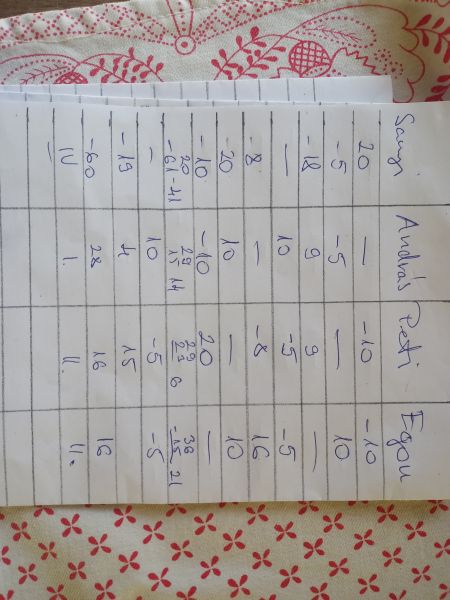 Sanyi András Peti Egon
20 — -10 -10
-5 -5 — 10
-18 9 9 —
— 10 -5 -5
-8 — -8 16
-20 10 — 10
-10 -10 20 —
20 29 29 36
-61 -41 15 14 23 6 -15 21
— 10 -5 -5
-19 4 15
-60 28 16 16
IV I. II. II.